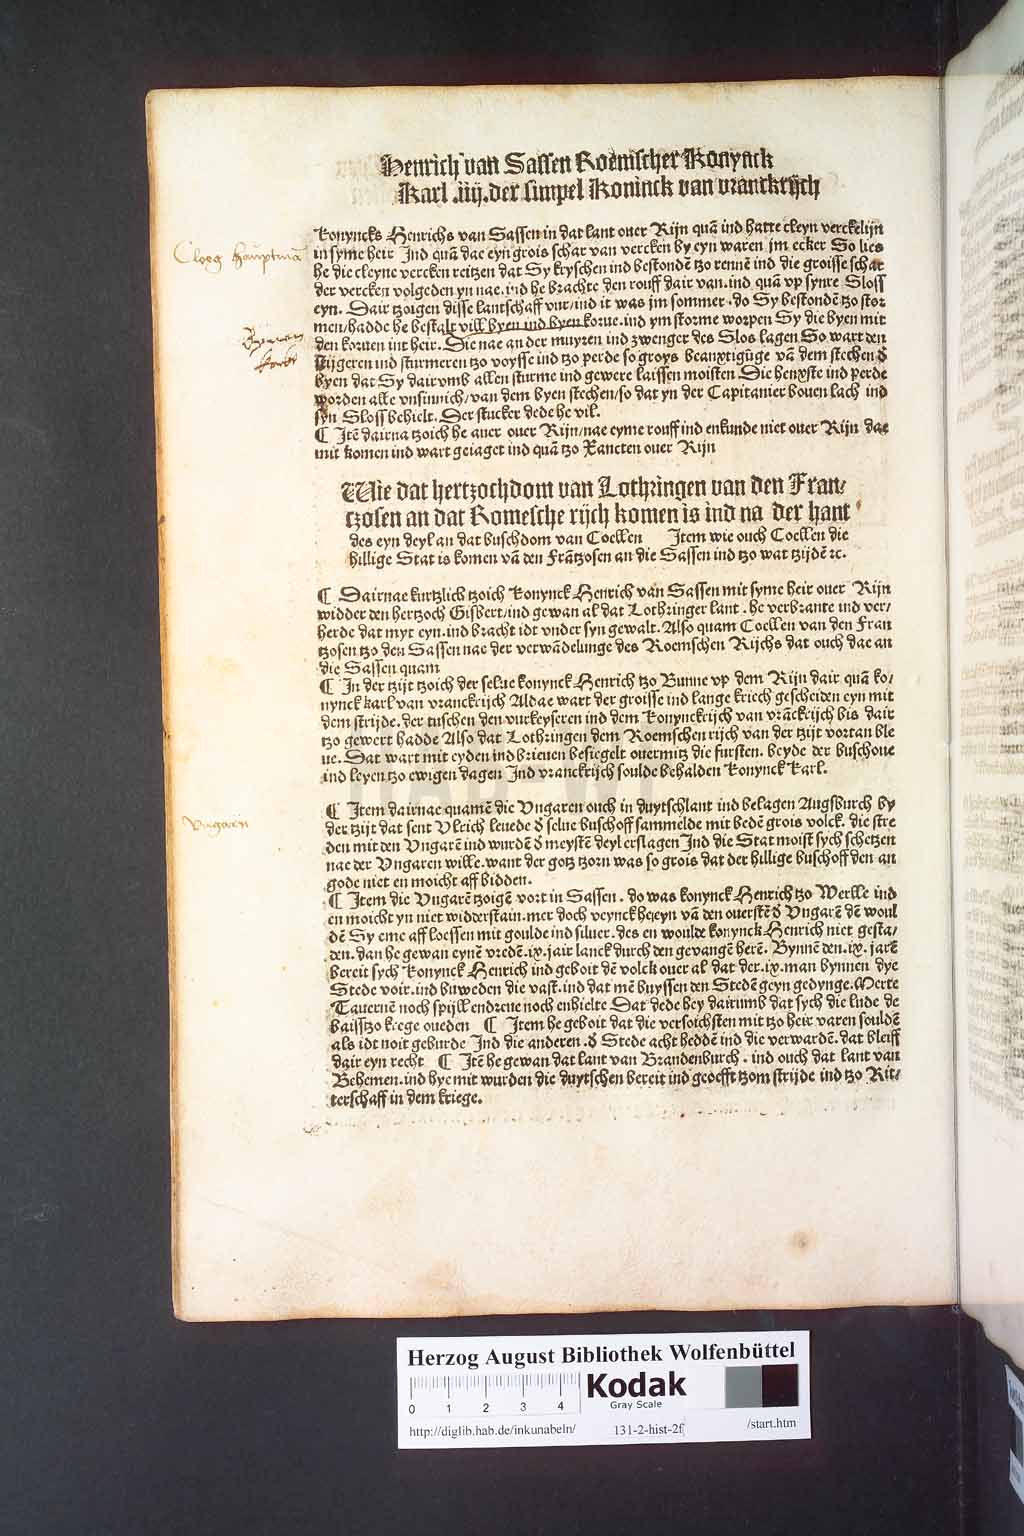 Henrich van Sassen Roemscher Konynck
Karl .iij. der simpel Koninck van vranckrijch
konyncks Henrichs van Sassen in dat lant ouer Rijn quā ind hatte cleyn verckelijn
in syme heir Ind quā dae eyn grois schar van vercken by eyn waren jm ecker So lies
he die cleyne vercken reitzen dat Sy kryschen ind bestondē tzo rennē ind die groisse schar
der vercken volgeden yn nae. ind he brachte den rouff dair van. ind quā vp synre Sloss
eyn. Dair tzoigen disse lantschaff vur/ ind it was jm sommer. do Sy bestondē tzo stor
men/ hadde he bestalt vill byen ind byen korue. ind ym storme worpen Sy die byen mit
den koruen int heir. Die nae an der muyren ind zwenger des Slos lagen So wart den
kijgeren ind sturmeren tzo voysse ind tzo perde so groys beanxtigūge vā dem stechen d̄
byen dat Sy dair vmb allen sturme ind gewere laissen moisten Die henxste ind perde
worden alle vnsinnich/ van dem byen stechen/ so dat yn der Capitanier bouen lach ind
syn Sloss behielt. Der stucker dede he vil.
¶ Itē dairna tzoich he auer ouer Rijn/ nae eyme rouff ind enkunde niet ouer Rijn dae
mit komen ind wart geiaget ind quā tzo Xancten ouer Rijn
Cloeg hauptmā
Byenen
korb
Wie dat hertzochdom van Lothringen van den Fran/
tzosen an dat Romesche rijch komen is ind na der hant
des eyn deyl an dat buschdom van Coellen Item wie ouch Coellen die
hillige Stat is komen vā den Frātzosen an die Sassen ind tzo wat tzijdē ꝛc.
¶ Dairnae kurtzlich tzoich konynck Henrich van Sassen mit syme heir ouer Rijn
widder den hertzoch Gisbert/ ind gewan al dat Lothringer lant. he verbrante ind ver/
herde dat myt eyn. ind bracht idt vnder syn gewalt. Also quam Coellen van den Fran
tzosen tzo den Sassen nae der verwādelunge des Roemschen Rijchs dat ouch dae an
die Sassen quam
¶ In der tzijt tzoich der selue konynck Henrich tzo Bunne vp dem Rijn dair quā ko/
nynck karl van vranckrijch Aldae wart der groisse ind lange kriech gescheiden eyn mit
dem strijde. der tuschen den vurkeyseren ind dem konynckrijch van vrāckrijch bis dair
tzo gewert hadde Also dat Lothringen dem Roemschen rijch van der tzijt vortan ble
ue. Dat wart mit eyden ind brieuen besiegelt ouermitz die fursten. beyde der buschoue
ind leyen tzo ewigen dagen Ind vranckrijch soulde behalden konynck Karl.
¶ Item dairnae quamē die Vngaren ouch in duytschlant ind belagen Augsburch by
der tzijt dat sent Vlrich leuede d̄ selue buschoff sammelde mit bedē grois volck. die stre
den mit den Vngarē ind wurdē d̄ meystē deyl erslagen Ind die Stat moist sych schetzen
nae der Vngaren wille. want der gotz tzorn was so grois dat der hillige buschoff den an
gode niet en moicht aff bidden.
Vngarn
¶ Item die Vngarē tzoigē vort in Sassen. do was konynck Henrich tzo Werlle ind
en moicht yn niet widderstain. mer doch veynck he eyn vā den ouerstē d̄ Vngarē dē woul
dē Sy eme aff loessen mit goulde ind siluer. des en woulde konynck Henrich niet gesta/
den. dan he gewan eynē vredē. ix. jair lanck durch den gevangē herē. Bynnē den. ix. jarē
bereit sych konynck Henrich ind geboit dē volck ouer al dat der. ix. man bynnen dye
Stede voir. ind buweden die vast. ind dat mē buyssen den Stedē geyn gedynge. Merte
Tauernē noch spijll endreue noch enhielte Dat dede hey dairumb dat sych die lude de
baiss tzo kriege oueden ¶ Item he geboit dat die versoichsten mit tzo heir varen souldē
als idt noit geburde Ind die anderen. d̄ Stede acht heddē ind die verwardē. dat bleiff
dair eyn recht ¶ Itē he gewan dat lant van Brandenburch. ind ouch dat lant van
Behemen. ind hye mit wurden die duytschen bereit ind geoefft tzom strijde ind tzo Rit/
terschaff in dem kriege.
Herzog August Bibliothek Wolfenbüttel
0 1 2 3 4
Kodak
Gray Scale
http://diglib.hab.de/inkunabeln/ 131-2-hist-2f /start.htm